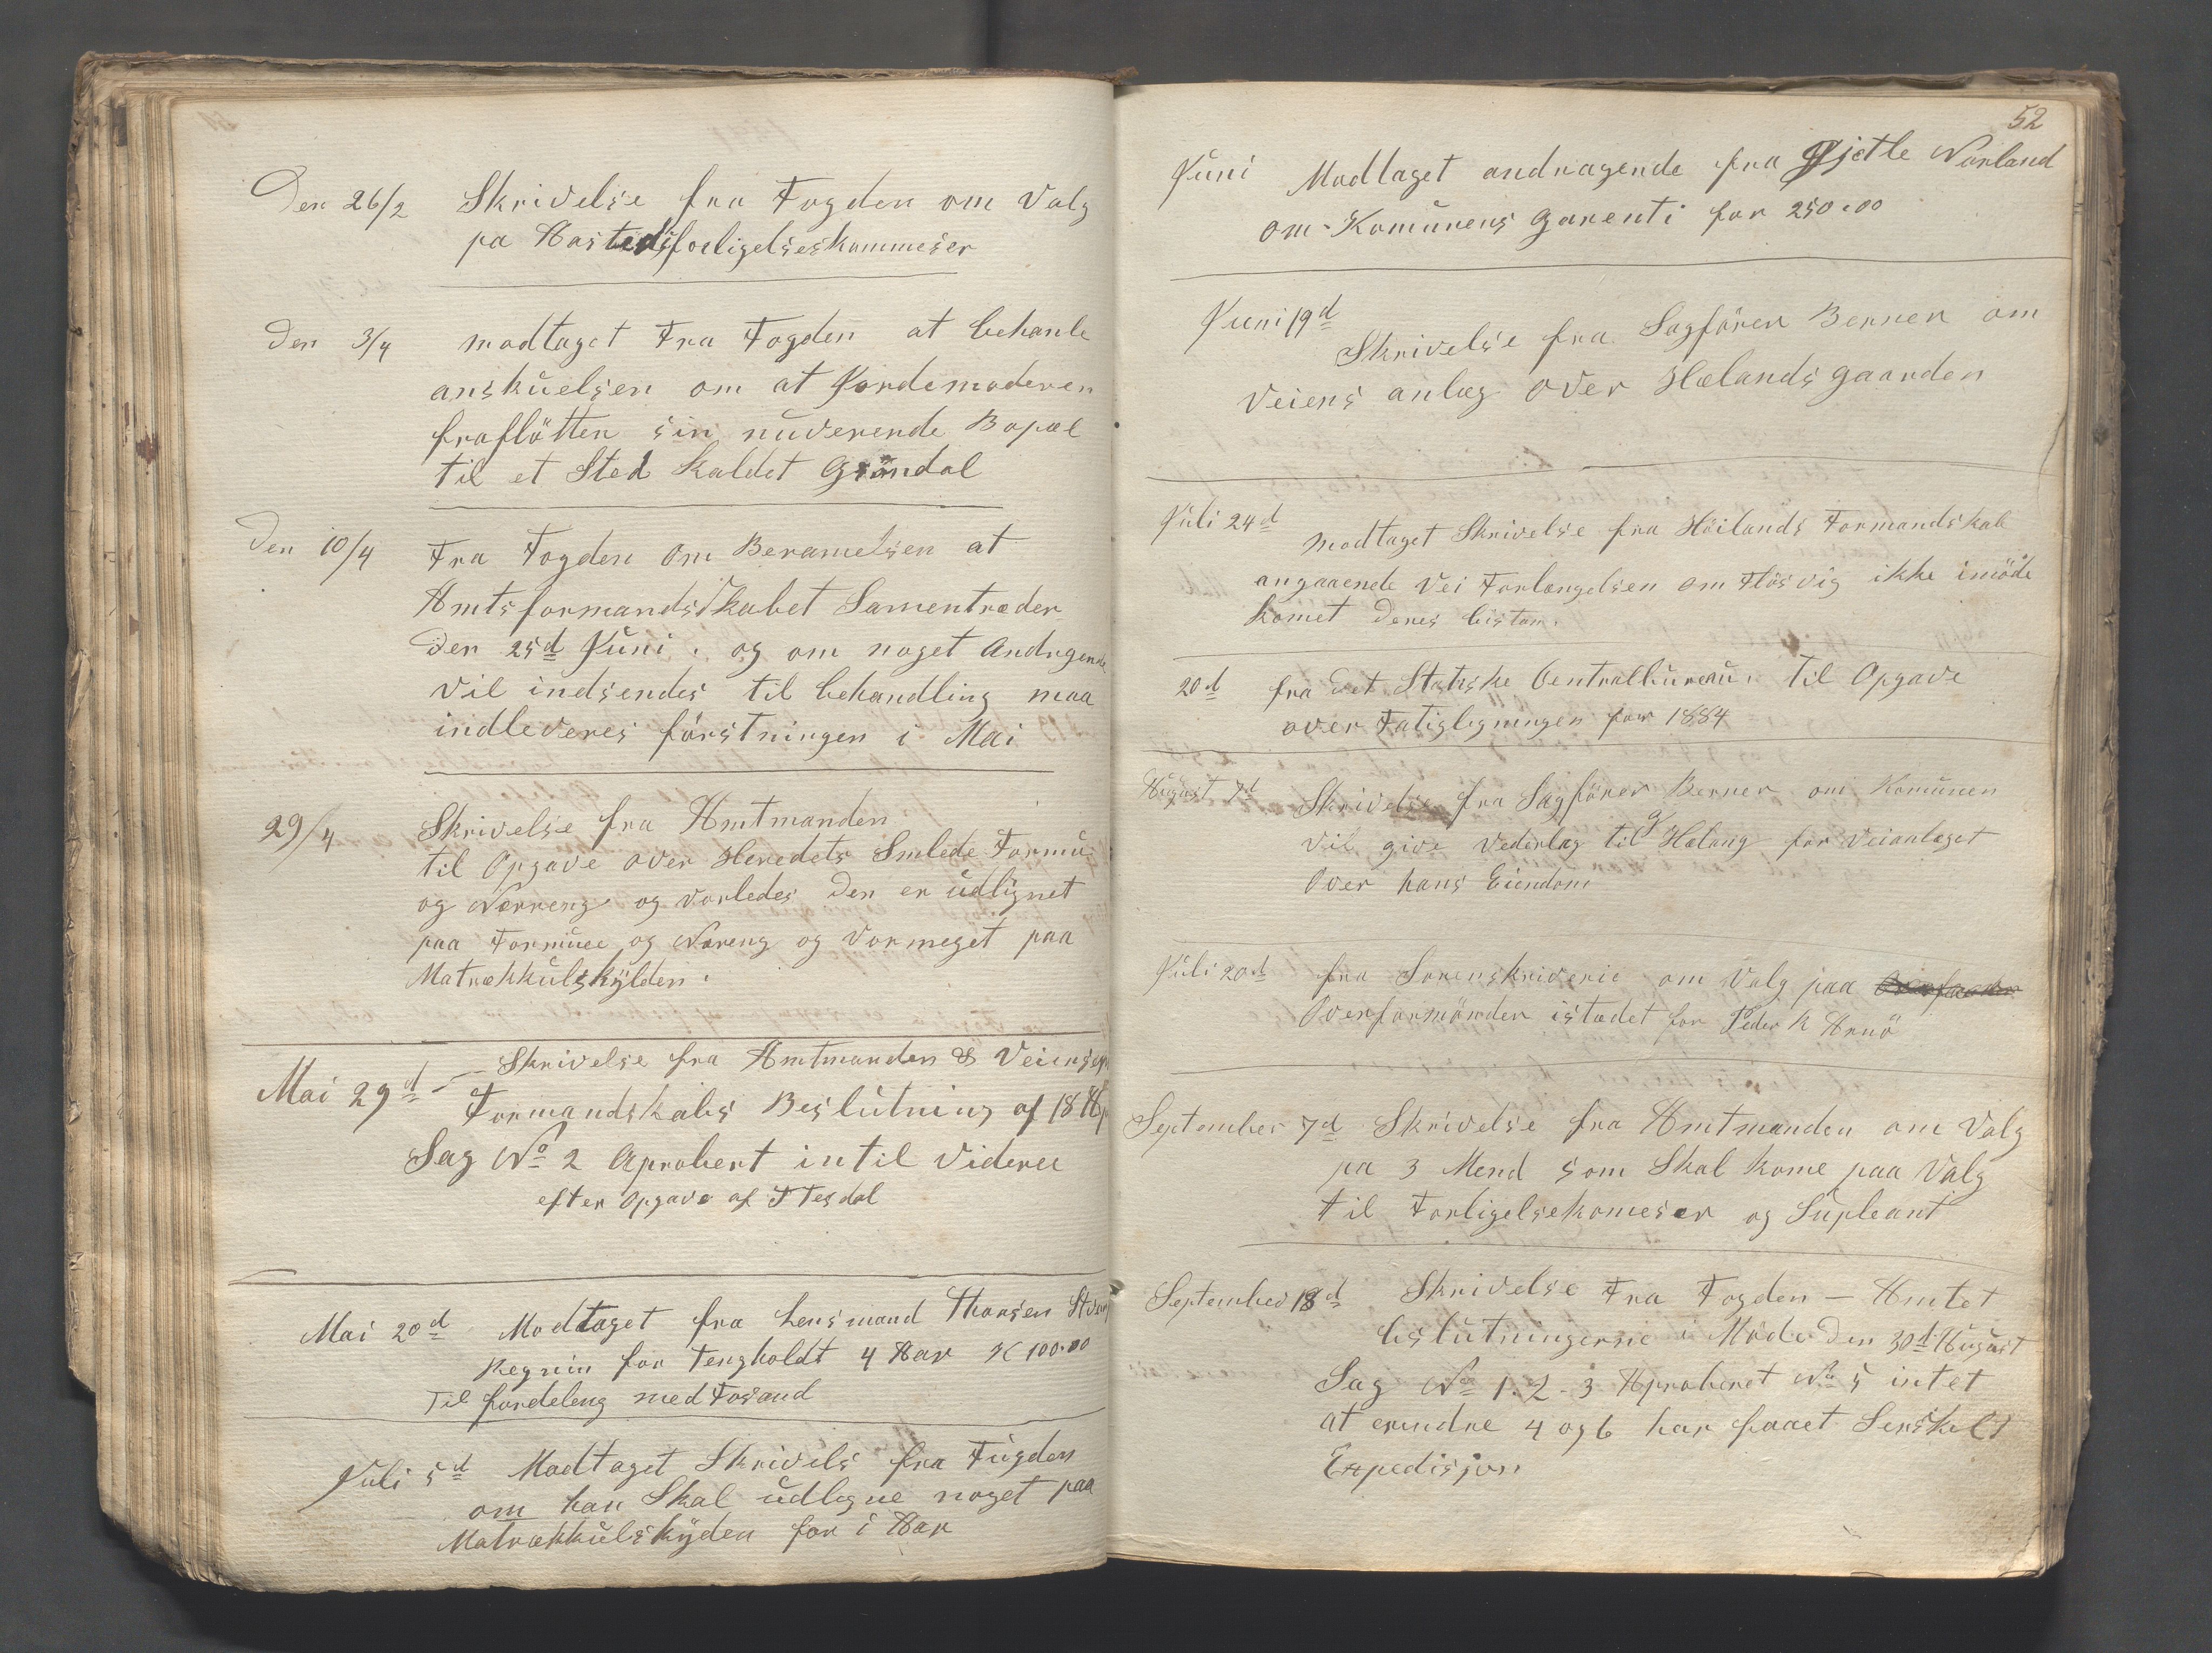 Den 26/2 Skrivelse fra Fogden om Valg
pa Hastedsforligelseskommeser
Den 3/4 modtaget Fra Fogden at behanle
anskuelsen om at Jordemoderen
fraflötten sin nuverende Bopæl
til et Sted kaldet Gröndal
Den 10/4 Fra Fogden om Beramelsen at
Amtsformandsskabet Samentræder
den 25d Juni. og om noget Andrgende
vil indsendes til behandling maa
indleveres förstningen i Mai
29/4 Skrivelse fra Amtmanden
til Opgave over Heredets Smlede Formu
og Nærreng og vorledes den er udlignet
paa Formuee og Næreng og vormeget paa
Matrækkulskylden.
Mai 29d Skrivelse fra Amtmanden
Formandskabs Beslutning af 18
Sag No 2 Aprobert intil videree
efter Opgave af T Tesdal
Mai 20d Modtaget fra Lensmand Thorsen
Regnin for Tengholdt 4 Aar K 100.00
Til fordeleng med Fosand
Juli 5d Modtaget Skrivels fra Fugden
om han Skal udligne noget paa
Matrækkulskyden for i Aar
52
Juni Modtaget andragende fra Gjetle Norland
om Komunens Garenti for 250,00
Juni 19d Skrivelse fra Sagförer Berner om
Veiens anlæg over Hælands gaarden
Juli 24d modtaget Skrivelse fra Höilands Formandskab
angaaende Vei Forlængelsen om Flösvig ikke imöde
komet deres bistan.
20d fra det Statiske Centralbureau. til Opgave
over Fatigligningen for 1884
August 7d Skrivelse fra Sagförer Berner om Komunen
vil give Vederlag til G Hælang for Veianlæget
Over hans Eiendom
Juli 20d fra Sorenskriverie om Valg paa
Overformönder istædet for Peder K Arnö
September 7d Skrivelse fra Amtmanden om Valg
pa 3 Mend som Skal kome paa Valg
til Forligelsekomeser og Supleant
September 18d Skrivelse Fra Fogden - Amtet
beslutningerne i Möde den 30d August
Sag No 1. 2 - 3 Aproberet No 5 intet
at erindre 4 og 6 har faaet Serskelt
Expedisjon